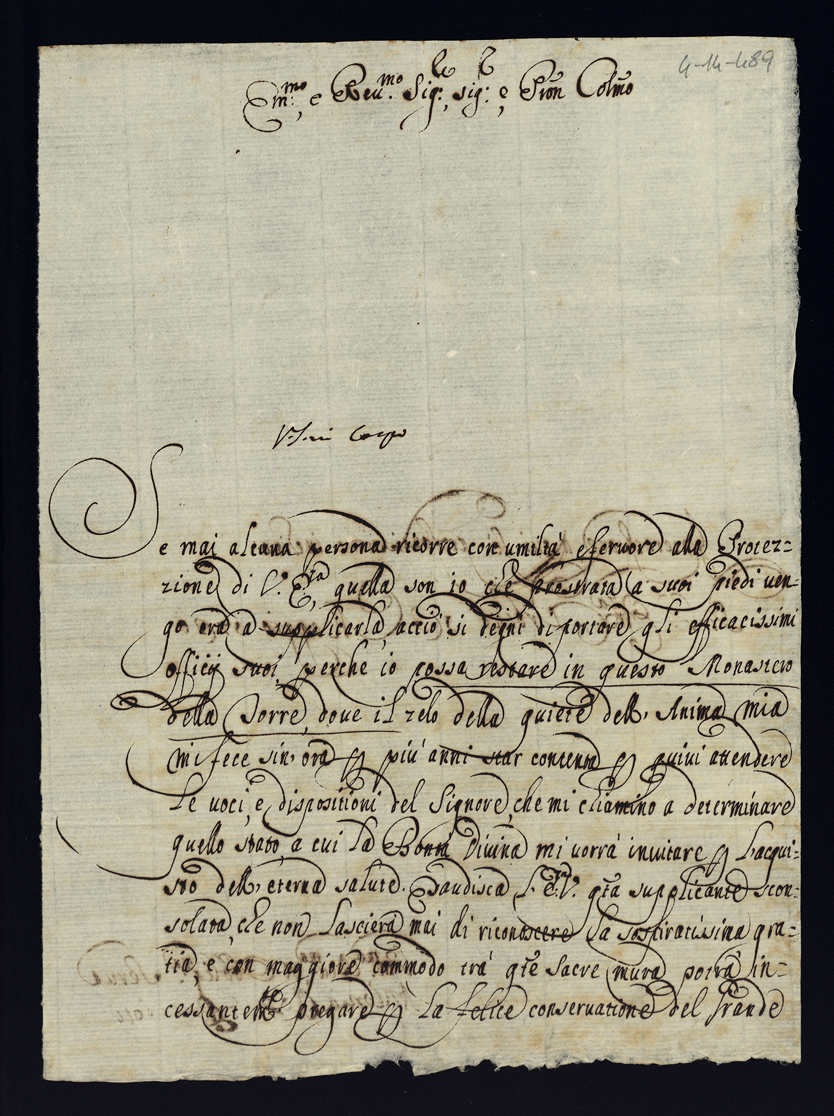 4-14-489
Em:mo, e Reu:mo Sig:, sig: e Pron Colmo
Se mai alcuna persona ricorre con umiltà e feruore alla Protez=
zione di V. Eza, quella son io che prostrata a suoi piedi ven-
go ora a supplicarla, acciò si degni di portare gli efficacissimi
officij suoi perche io possa restare in questo Monastero
della Torre, dove il zelo della quiete dell'Anima mia
mi fece sin'ora più anni star contenta quivi attendere
le voci, e dispositioni del Signore, che mi chiamino a determinare
quello stato, a cui la Bontà Divina mi vorrà invitare l'acqui=
sto dell'eterna salute. Esaudisca qta supplicante scon=
solata, che non lascierà mai di riconoscere la sospiratissima gra=
tia, e con maggiore commodo trà qte sacre mura potrà in=
cessantemte pregare la felice conservatione del Grande